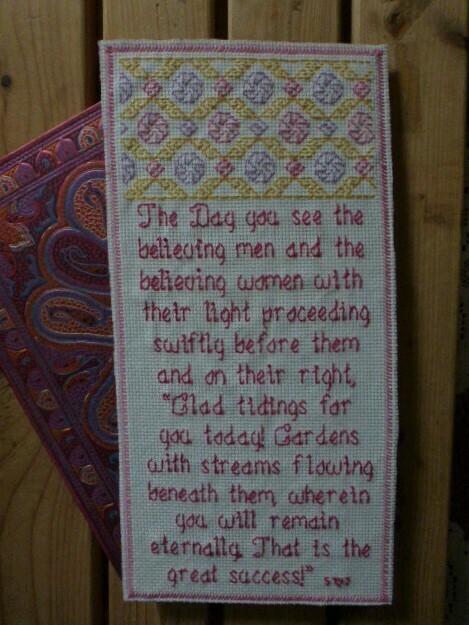 The Day you see the
believing men and the
believing women with
their light proceeding
swiftly before them
and on their right,
"Glad tidings for
you today! Gardens
with streams flowing
beneath them, wherein
you will remain
eternally. That is the
great success!"